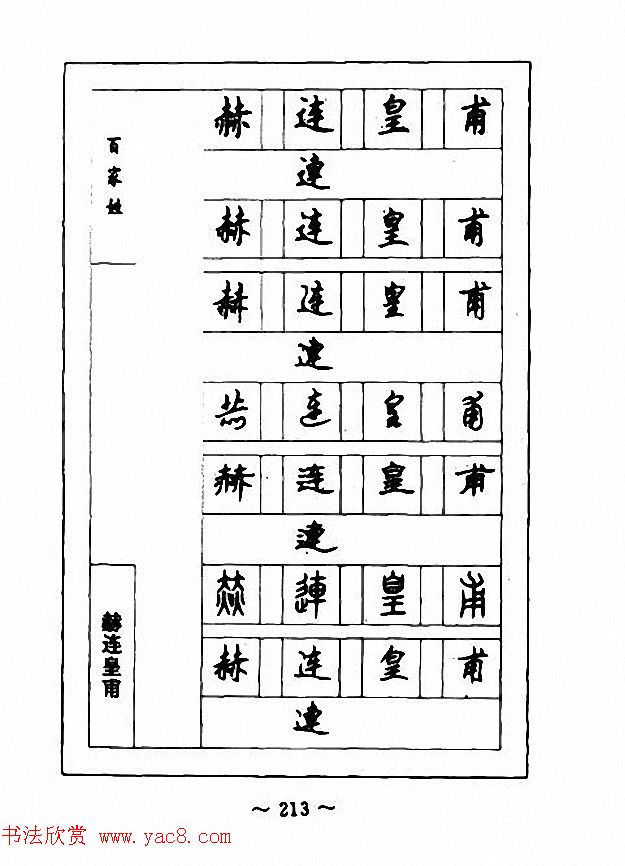 百家姓
赫连皇甫
連
赫连皇甫
赫连皇甫
連
赫连皇甫
赫连皇甫
連
赫連皇甫
赫连皇甫
連
赫连皇甫
～ 213 ～
书法欣赏 www.yac8.com